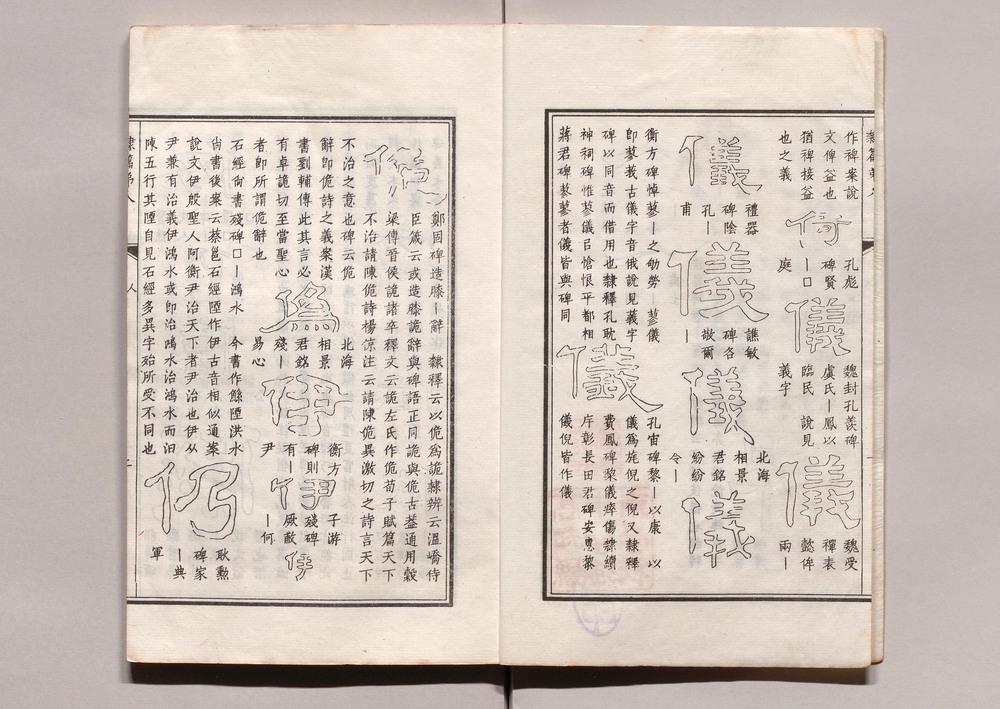 作稗案說
文俾益也
猶稗接益
也之義
孔彪
碑賢
庭
儀
魏封孔羨碑
虞氏｜鳳以
臨民　說見
義字
儀
魏受
禪表
懿侔
兩｜
儀
禮器
碑陰
孔｜
甫
儀
譙敏
碑各
敬爾
｜
儀
北海
相景
君銘
紛紛
令｜
儀
衡方碑悼蓼｜之劬勞｜蓼儀
卽蓼莪古儀字音俄說見義字
碑以同音而借用也隸釋孔耽
神祠碑惟蓼儀㠯愴恨平都相
蔣君碑蓼蓼者儀皆與碑同
儀
孔宙碑黎｜以康　以
儀爲旄倪之倪又隸釋
費鳳碑黎儀瘁傷隸續
斥彰長田君碑安惠黎
儀倪皆作儀
佹
鄭固碑造膝｜辭　隸釋云以佹爲詭隸辨云溫嶠侍
臣箴云或造膝詭辭與碑語正同詭與佹古葢通用穀
梁傳晉侯詭諸卒釋文云詭左氏作佹荀子賦篇天下
不治請陳佹詩楊倞注云請陳佹異激切之詩言天下
不治之意也碑云佹
辭卽佹詩之義案漢
書劉輔傳此其言必
有卓詭切至當聖心
者卽所謂佹辭也
僞
北海
相景
君銘
殘｜
易心
伊
衡方
碑則
有｜
尹
伊
子游
殘碑
厥敵
｜何
伊
石經尙書殘碑□｜鴻水　今書作鯀陻洪水
尙書後案云蔡邕石經陻作伊古音相似通案
說文伊殷聖人阿衡尹治天下者尹治也伊从
尹兼有治義伊鴻水或卽治鴻水治鴻水而汩
陳五行其陻自見石經多異字殆所受不同也
仍
耿勳
碑家
｜典
軍
人